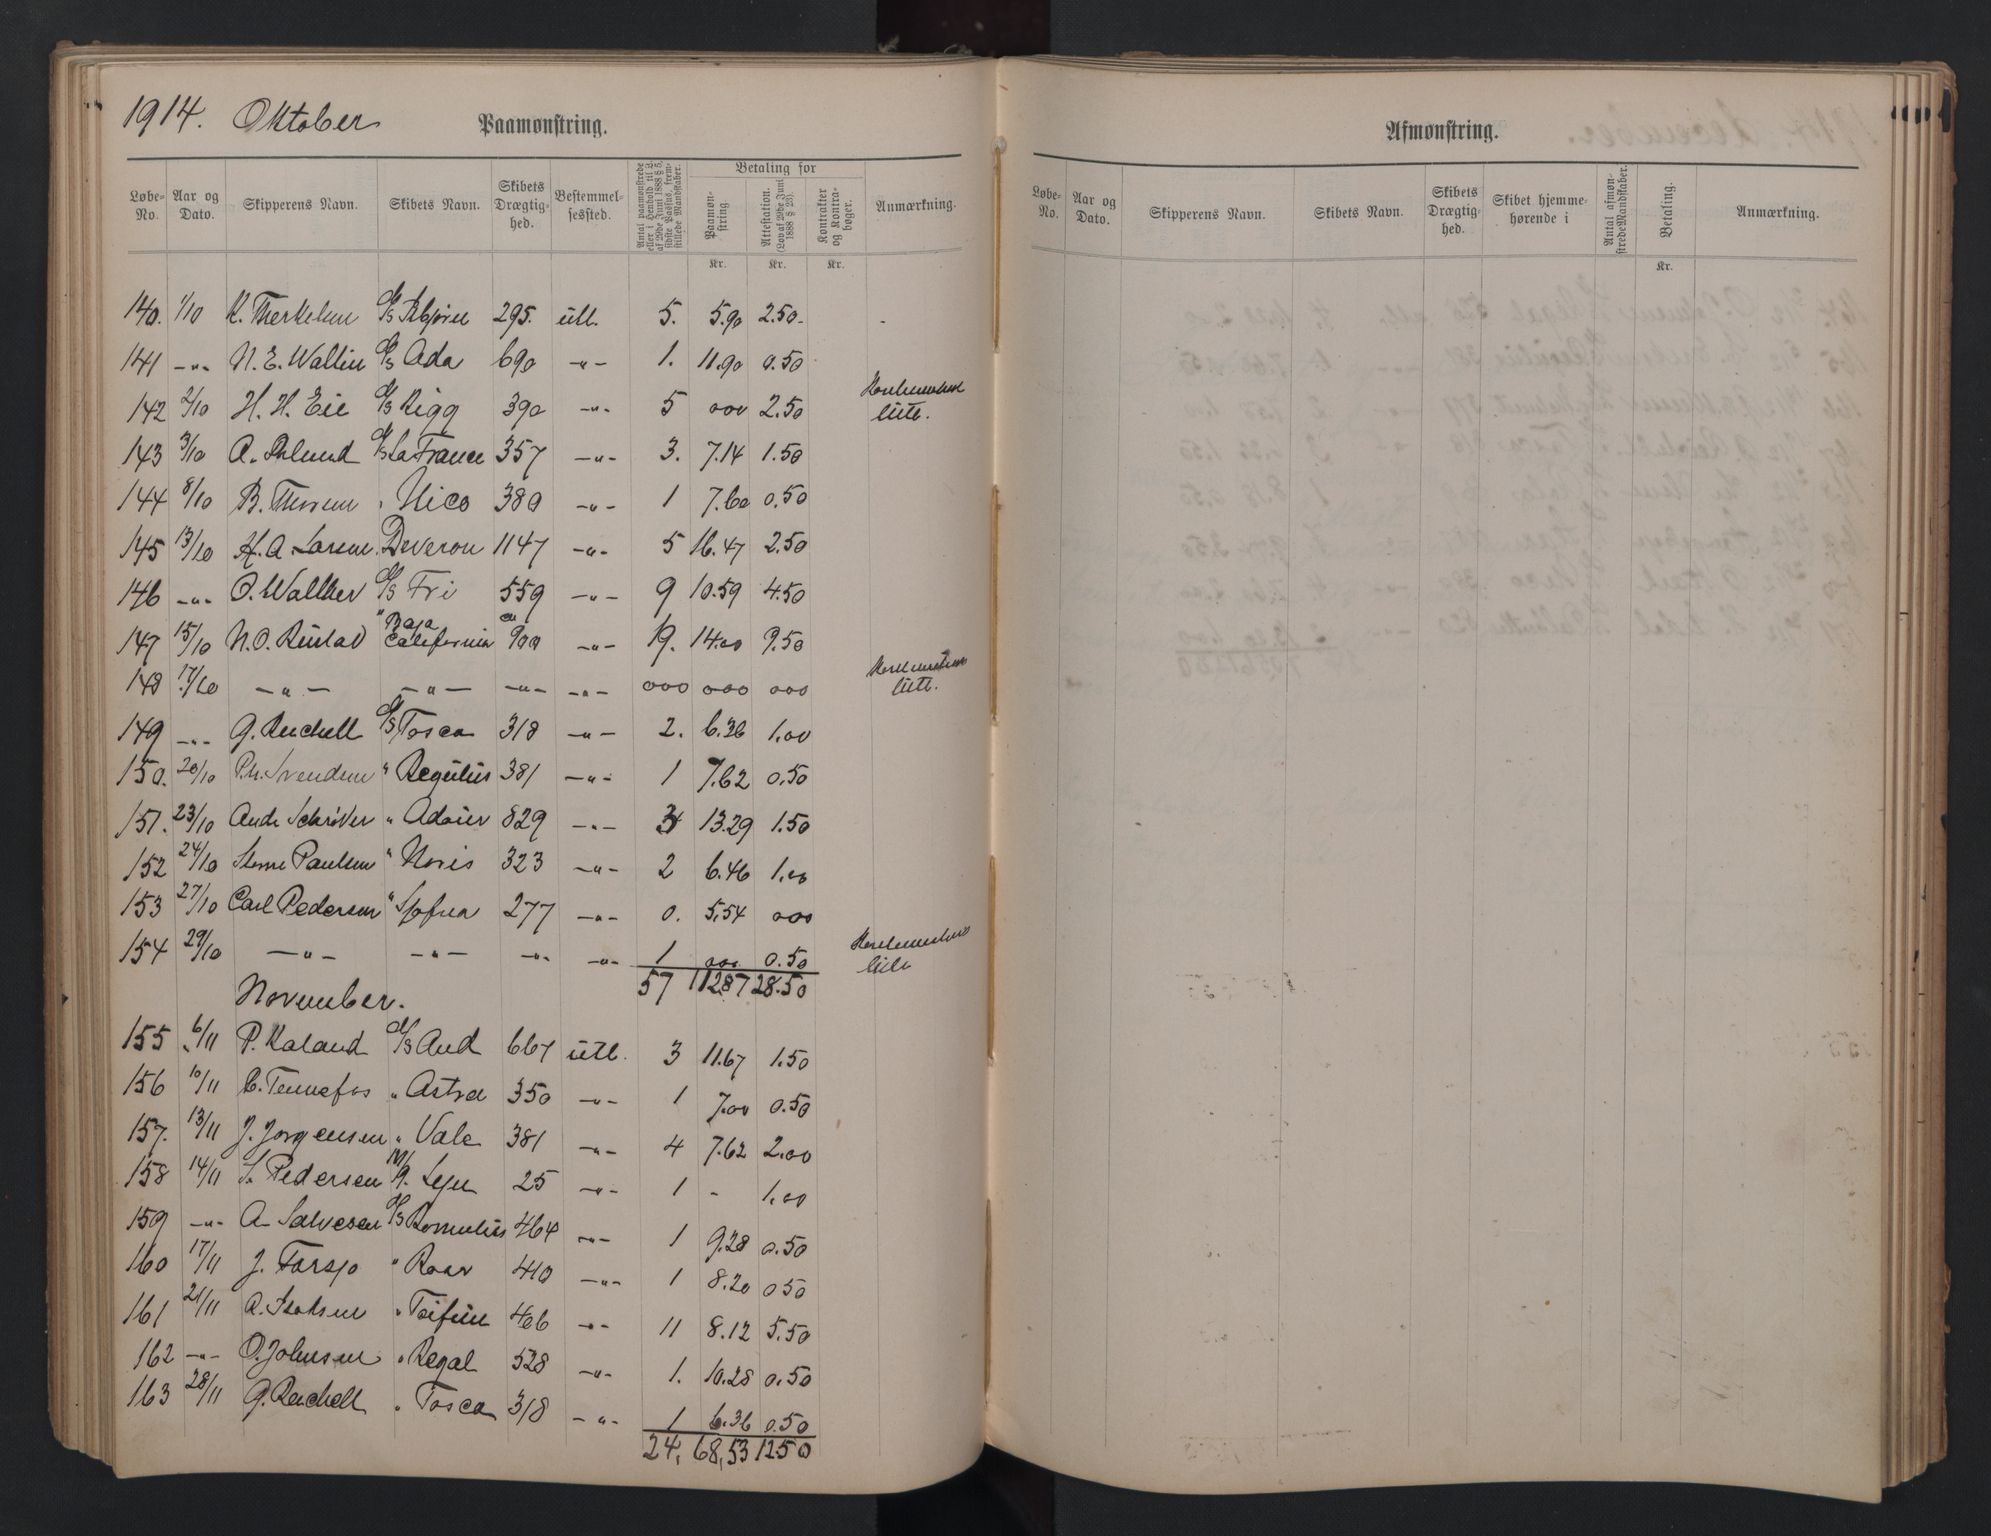 1914. Oktober Paamønstring.
Løbe-No. Aar og Dato. Skipperens Navn. Skibets Navn. Skibets Drægtighed. Bestemmelsessted. Antal paamønstrede eller i Henhold til L. af 29de Juni 1888 § 5, sidste Passus, fremstillede Mandskaber. Betaling for Paamønstring Attestation. (Lov af 29de Juni 1888 § 23). Kontrakter og Kontrabøger. Anmærkning.
Kr. Kr. Kr.
140. 1/10 K. Therkelsen D/S Asbjørn 295. utl. 5. 5.90 2.50
141 -"- N. E. Wallin D/S Ada 690 -"- 1. 11.90 0.50
142 2/10 H. H. Eie D/S Rigg 390 -"- 5 000 2.50 utl.
143 3/10 A. D/S La France 357 -"- 3. 7.14 1.50
144 8/10 B. Thorsen " Nico 380 -"- 1 7.60 0.50
145 13/10 H. A. Larsen " Deveron 1147 -"- 5 16.47 2.50
146 -"- O. Walther D/S Fri 559 -"- 9 10.59 4.50
147 15/10 N. O. Rustad " Baja California ca 900 -"- 19. 14.00 9.50
148 17/10 -"- -"- -"- -"- 000 000 000 utl.
149 -"- G. Reichelt D/S Tosca 318 -"- 2. 6.36 1.00
150. 20/10 Ph. Svendsen " Regulus 381 -"- 1 7.62 0.50
151. 23/10 Andr. Schrøder " Adair 829 -"- 3 13.29 1.50
152 24/10 Paulsen " Noris 323 -"- 2 6.46 1.00
153 27/10 Carl Pedersen " Sjofna 277 -"- 0. 5.54 000
154 29/10 -"- -"- -"- -"- 1 000 0.50
57 112.87 28.50
November.
155 6/11 P. Kaland D/S Aud 667 utl. 3 11.67 1.50
156 10/11 C. Tennefos " Astrea 350 -"- 1 7.00 0.50
157. 13/11 J. Jorgensen " Vale 381 -"- 4 7.62 2.00
158 14/11 S. Pedersen 25 -"- 1 - 1.00
159 -"- A. Salvesen D/S Romulus 464 -"- 1 9.28 0.50
160 17/11 J. Torsjo " Roar 410 -"- 1 8.20 0.50
161 21/11 A. Isaksen " Taifun 406 -"- 11 8.12 5.50
162 -"- O. Johnsen " Regal 528 -"- 1. 10.28 0.50
163 28/11 G. Reichelt " Tosca 318 -"- 1 6.36 0.50
24. 68,53 12.50
Afmønstring.
Løbe-No. Aar og Dato. Skipperens Navn. Skibets Navn. Skibets Drægtighed. Skibet hjemmehørende i Antal afmønstrede Mandskaber. Betaling. Anmærkning.
Kr.